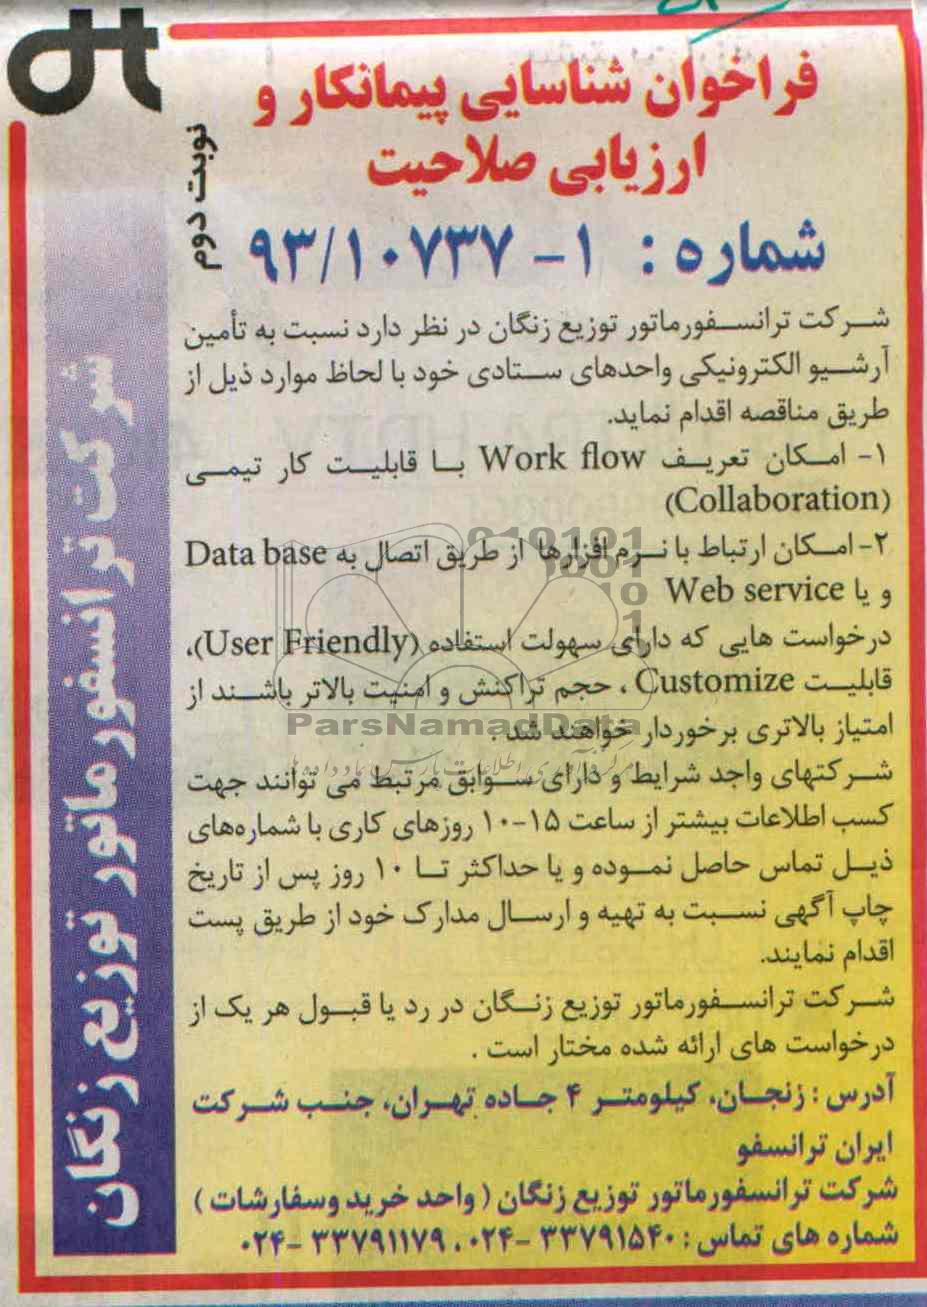 dt
فراخوان شناسایی پیمانکار و
ارزیابی صلاحیت
نوبت دوم
شماره : ۱- ۹۳/۱۰۷۳۷
شرکت ترانسفورماتور توزیع زنگان در نظر دارد نسبت به تأمین
آرشیو الکترونیکی واحدهای ستادی خود با لحاظ موارد ذیل از
طریق مناقصه اقدام نماید.
۱- امکان تعریف Work flow با قابلیت کار تیمی
(Collaboration)
۲- امکان ارتباط با نرم افزارها از طریق اتصال به Data base
و یا Web service
درخواست هایی که دارای سهولت استفاده (User Friendly)،
قابلیت Customize ، حجم تراکنش و امنیت بالاتر باشند از
امتیاز بالاتری برخوردار خواهند شد .
شرکتهای واجد شرایط و دارای سوابق مرتبط می توانند جهت
کسب اطلاعات بیشتر از ساعت ۱۵-۱۰ روزهای کاری با شماره‌های
ذیل تماس حاصل نموده و یا حداکثر تا ۱۰ روز پس از تاریخ
چاپ آگهی نسبت به تهیه و ارسال مدارک خود از طریق پست
اقدام نمایند.
شرکت ترانسفورماتور توزیع زنگان در رد یا قبول هر یک از
درخواست های ارائه شده مختار است .
آدرس : زنجان، کیلومتر ۴ جاده تهران، جنب شرکت
ایران ترانسفو
شرکت ترانسفورماتور توزیع زنگان ( واحد خرید وسفارشات )
شماره های تماس : ۳۳۷۹۱۵۴۰ -۰۲۴ ، ۳۳۷۹۱۱۷۹ -۰۲۴
شرکت ترانسفورماتور توزیع زنگان
ParsNamadData